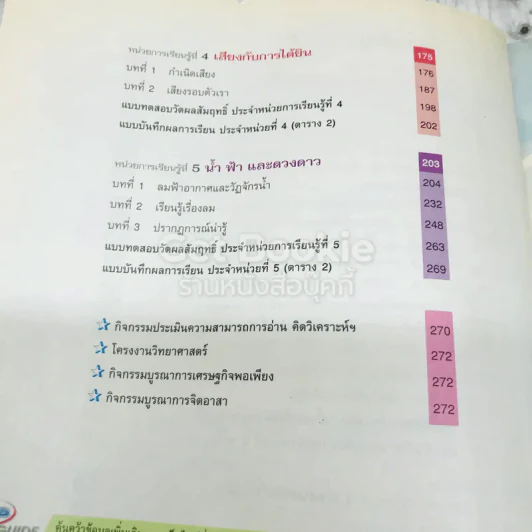 หน่วยการเรียนรู้ที่ 4 เสียงกับการได้ยิน 175
บทที่ 1 กำเนิดเสียง 176
บทที่ 2 เสียงรอบตัวเรา 187
แบบทดสอบวัดผลสัมฤทธิ์ ประจำหน่วยการเรียนรู้ที่ 4 198
แบบบันทึกผลการเรียน ประจำหน่วยที่ 4 (ตาราง 2) 202
หน่วยการเรียนรู้ที่ 5 น้ำ ฟ้า และดวงดาว 203
บทที่ 1 ลมฟ้าอากาศและวัฏจักรน้ำ 204
บทที่ 2 เรียนรู้เรื่องลม 232
บทที่ 3 ปรากฏการณ์น่ารู้ 248
แบบทดสอบวัดผลสัมฤทธิ์ ประจำหน่วยการเรียนรู้ที่ 5 263
แบบบันทึกผลการเรียน ประจำหน่วยที่ 5 (ตาราง 2) 269
ร้านหนังสือบุคกี้
กิจกรรมประเมินความสามารถการอ่าน คิดวิเคราะห์ฯ 270
โครงงานวิทยาศาสตร์ 272
กิจกรรมบูรณาการเศรษฐกิจพอเพียง 272
กิจกรรมบูรณาการจิตอาสา 272